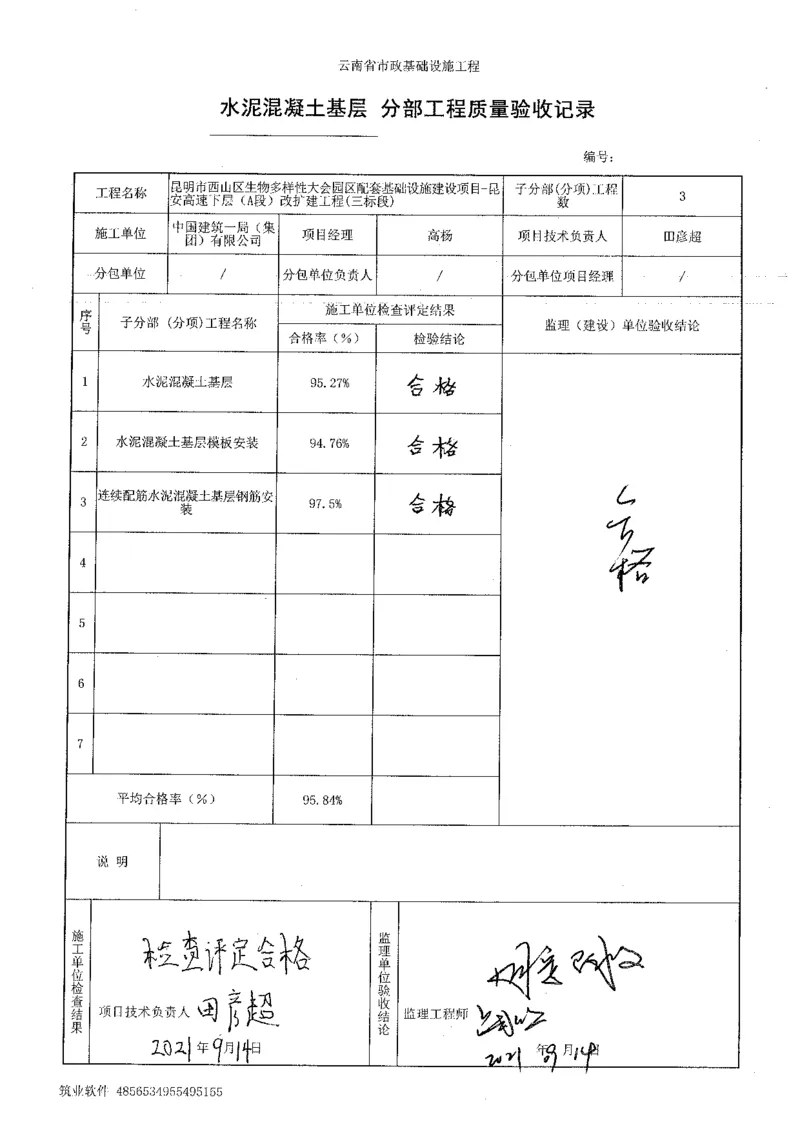 云南省市政基础设施工程
水泥混凝土基层 分部工程质量验收记录
编号:
工程名称 昆明市西山区生物多样性大会园区配套基础设施建设项目-昆安高速下层（A段）改扩建工程(三标段) 子分部(分项)工程数 3
施工单位 中国建筑一局（集团）有限公司 项目经理 高杨 项目技术负责人 田彦超
分包单位 / 分包单位负责人 / 分包单位项目经理 /
序号 子分部 (分项)工程名称 施工单位检查评定结果 监理（建设）单位验收结论
合格率（%） 检验结论
1 水泥混凝土基层 95.27% 合格
2 水泥混凝土基层模板安装 94.76% 合格
3 连续配筋水泥混凝土基层钢筋安装 97.5% 合格
合格
4
5
6
7
平均合格率（%） 95.84%
说 明
施工单位检查结果
检查评定合格
项目技术负责人 田彦超
2021年9月14日
监理单位验收结论
同意验收
监理工程师
2021年9月14日
筑业软件 4856534955495155